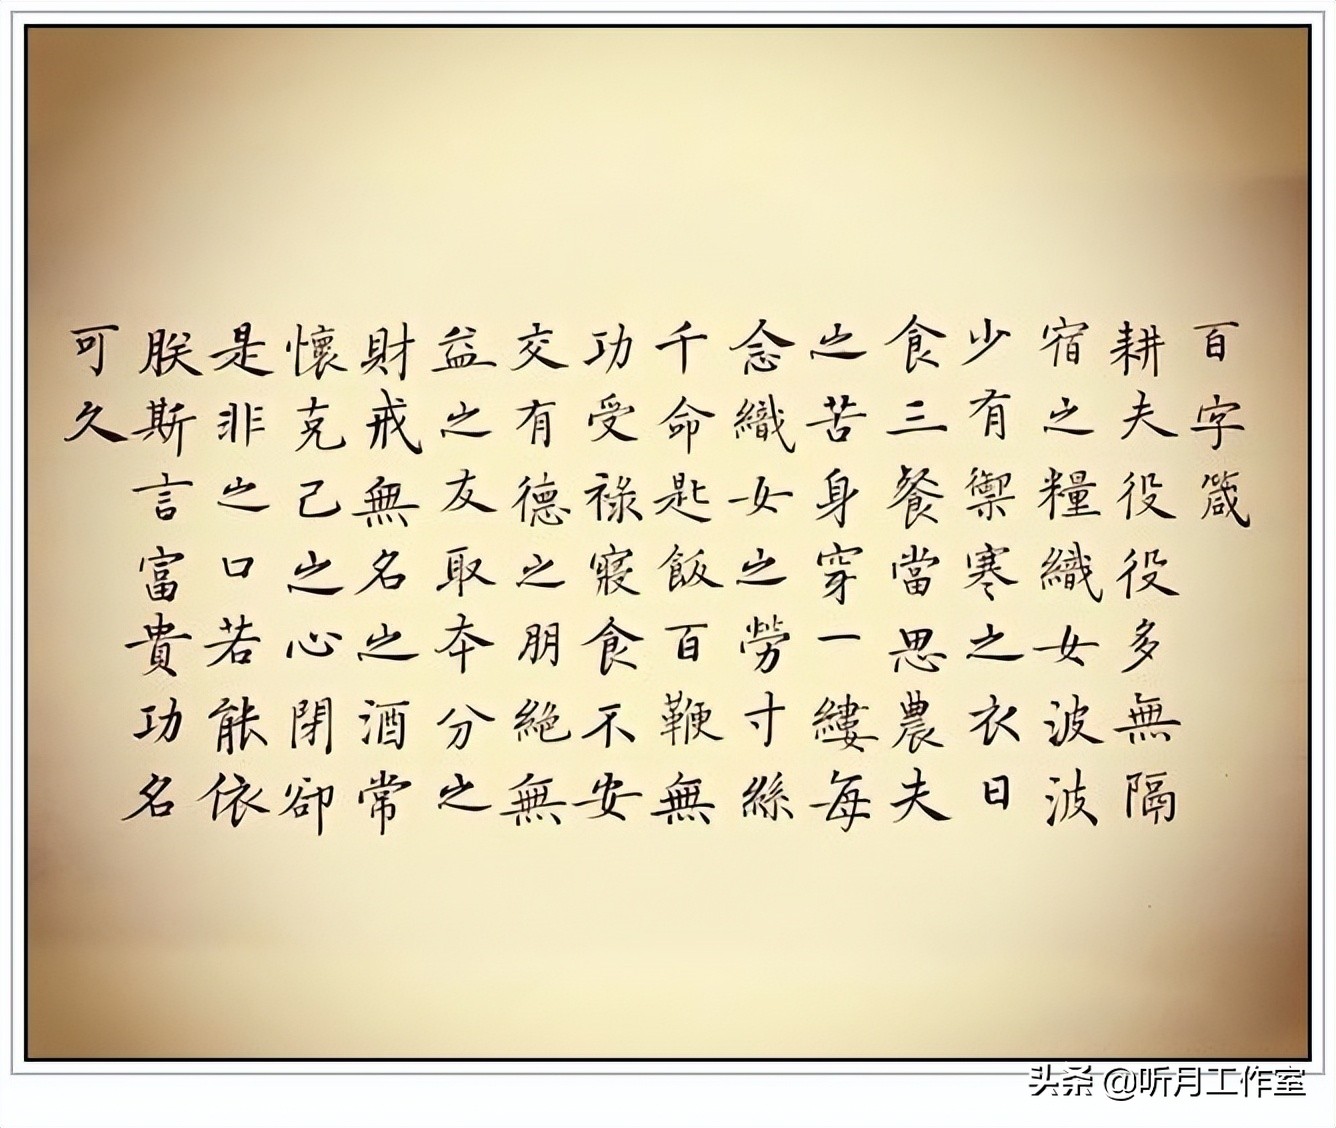 百字箴
耕夫役役多無隔
宿之糧織女波波
少有禦寒之衣日
食三餐當思農夫
之苦身穿一縷每
念織女之勞寸絲
千命匙飯百鞭無
功受祿寢食不安
交有德之朋絕無
益之友取本分之
財戒無名之酒常
懷克己之心閉卻
是非之口若能依
朕斯言富貴功名
可久
头条 @听月工作室